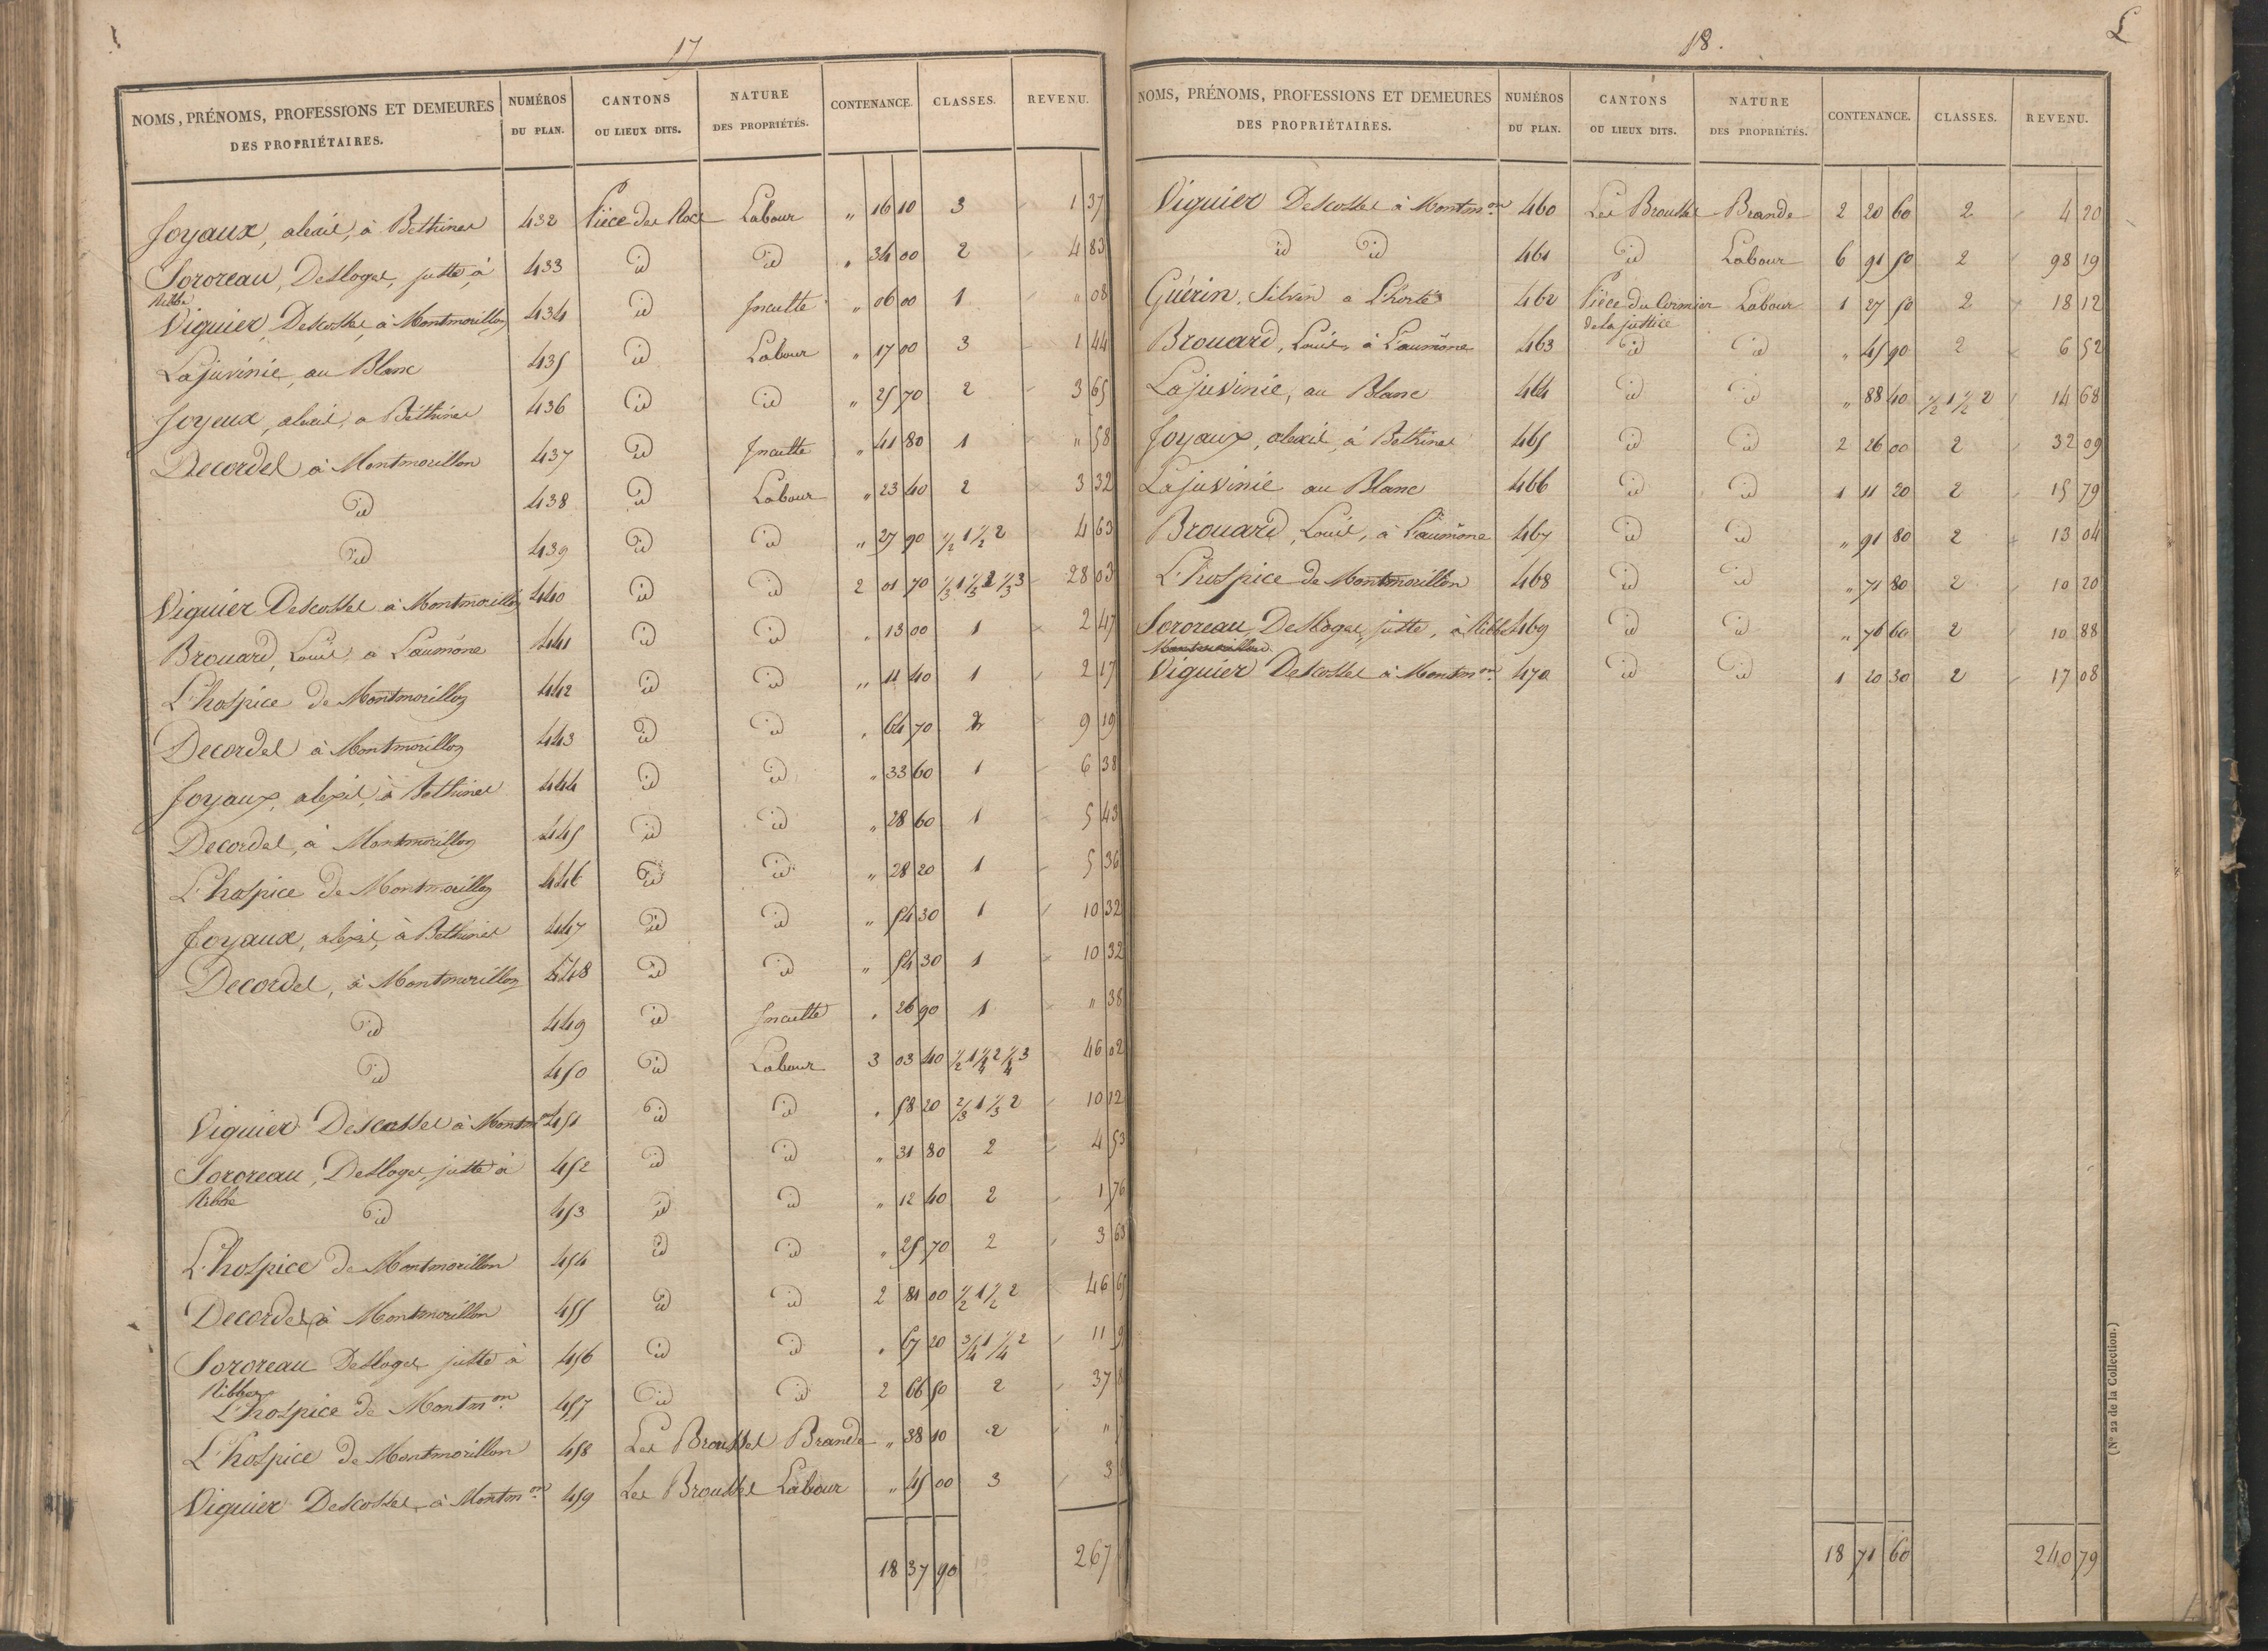 17
NOMS, PRÉNOMS, PROFESSIONS ET DEMEURES DES PROPRIÉTAIRES. NUMÉROS DU PLAN. CANTONS OU LIEUX DITS. NATURE DES PROPRIÉTÉS. CONTENANCE. CLASSES. REVENU.
Joyaux, alexis, à Bethines 432 Pièce des Rocs Labour " 16 10 3 1 37
Sororeau, Desloges, juste, à Ribbe 433 id id " 34 00 2 4 83
Viguier, Descosses, à Montmorillon 434 id Inculte " 06 00 1 " 08
Lajuvinie, au Blanc 435 id Labour " 17 00 3 1 44
Joyeux, alexis, à Béthines 436 id id " 25 70 2 3 65
Decordes à Montmorillon 437 id Inculte " 41 80 1 " 58
id 438 id Labour " 23 40 2 3 32
id 439 id id " 27 90 1/2 1 1/2 2 4 63
Viguier Descosses à Montmorillon 440 id id 2 01 70 1/3 1 1/3 2 1/3 3 28 03
Brouard, Louis, à L'aumône 441 id id " 13 00 1 2 47
L'hospice de Montmorillon 442 id id " 11 40 1 2 17
Decordes à Montmorillon 443 id id " 64 70 2 9 19
Joyaux, alexis, à Bethines 444 id id " 33 60 1 6 38
Decordes, à Montmorillon 445 id id " 28 60 1 5 43
L'hospice de Montmorillon 446 id id " 28 20 1 5 36
Joyaux, alexis, à Bethines 447 id id " 54 30 1 10 32
Decordes, à Montmorillon 448 id id " 54 30 1 10 32
id 449 id Inculte " 26 90 1 " 38
id 450 id Labour 3 03 40 1/2 1 1/4 2 1/4 3 46 02
Viguier Descosses à Montmon 451 id id " 58 20 2/3 1 1/3 2 10 12
Sororeau, Desloges, juste à Ribbe 452 id id " 31 80 2 4 53
id 453 id id " 12 40 2 1 76
L'hospice de Montmorillon 454 id id " 25 70 2 3 65
Decordes, à Montmorillon 455 id id 2 81 00 1/2 1 1/2 2 46 65
Sororeau Desloges juste à Ribbe 456 id id " 67 20 3/4 1 1/4 2 11 9
L'hospice de Montmon 457 id id 2 66 50 2 37 8
L'hospice de Montmorillon 458 Les Brousses Brande " 38 10 2 "
Viguier Descosses, à Montmon 459 Les Brousses Labour " 45 00 3 3
18 37 90 267
18. L
NOMS, PRÉNOMS, PROFESSIONS ET DEMEURES DES PROPRIÉTAIRES. NUMÉROS DU PLAN. CANTONS OU LIEUX DITS. NATURE DES PROPRIÉTÉS. CONTENANCE. CLASSES. REVENU.
Viguier Descosses à Montmon 460 Les Brousses Brande 2 20 60 2 4 20
id id 461 id Labour 6 91 50 2 98 19
Guérin, Silvin à L'horte 462 Pièce du Cormier de la justice Labour 1 27 50 2 18 12
Brouard, Louis, à L'aumône 463 id id " 45 90 2 6 52
Lajuvinie, au Blanc 464 id id " 88 40 1/2 1 1/2 2 14 68
Joyaux, alexis, à Bethines 465 id id 2 26 00 2 32 09
Lajuvinie au Blanc 466 id id 1 11 20 2 15 79
Brouard, Louis, à L'aumône 467 id id " 91 80 2 13 04
L'hospice de Montmorillon 468 id id " 71 80 2 10 20
Sororeau Desloges, juste, à Ribbe 469 id id " 76 60 2 10 88
Montmorillon
Viguier Descosses à Montmon 470 id id 1 20 30 2 17 08
18 71 60 240 79
(N° 22 de la Collection.)